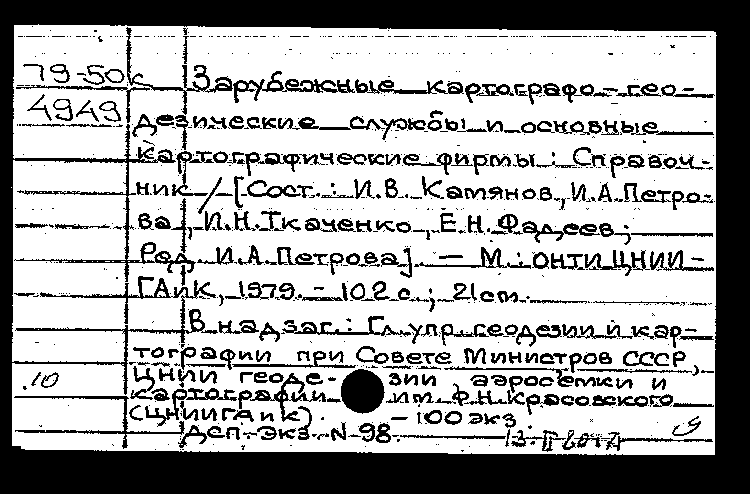 79-50к Зарубежные картографо-гео-
4949 дезические службы и основные
картографические фирмы : Справоч-
ник / [Сост.: И.В. Камянов, И.А.Петро-
ва, И.Н.Ткаченко, Е.Н. Фадеев ;
Ред. И.А.Петрова]. — М.: ОНТИ ЦНИИ-
ГАиК, 1979. - 102 с.; 21см.
В надзаг.: Гл. упр. геодезии и кар-
тографии при Совете Министров СССР,
ЦНИИ геоде- зии, аэросъемки и
.10 картографии им. Ф.Н.Красовского
(ЦНИИГАиК). - 100 экз.
ДСП. Экз. N 98.